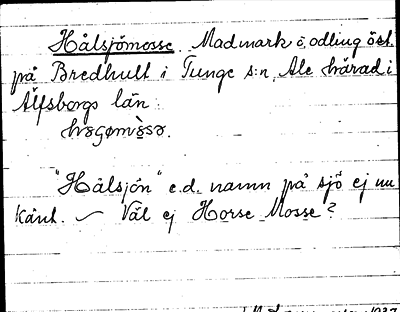 Hålsjömosse. Madmark o. odling öst.
på Bredhult i Tunge s:n, Ale härad i
Älfsborgs län.
høgømèsø.
"Hålsjön" e.d. namn på sjö ej nu
känt. — Väl ej Horse Mosse?